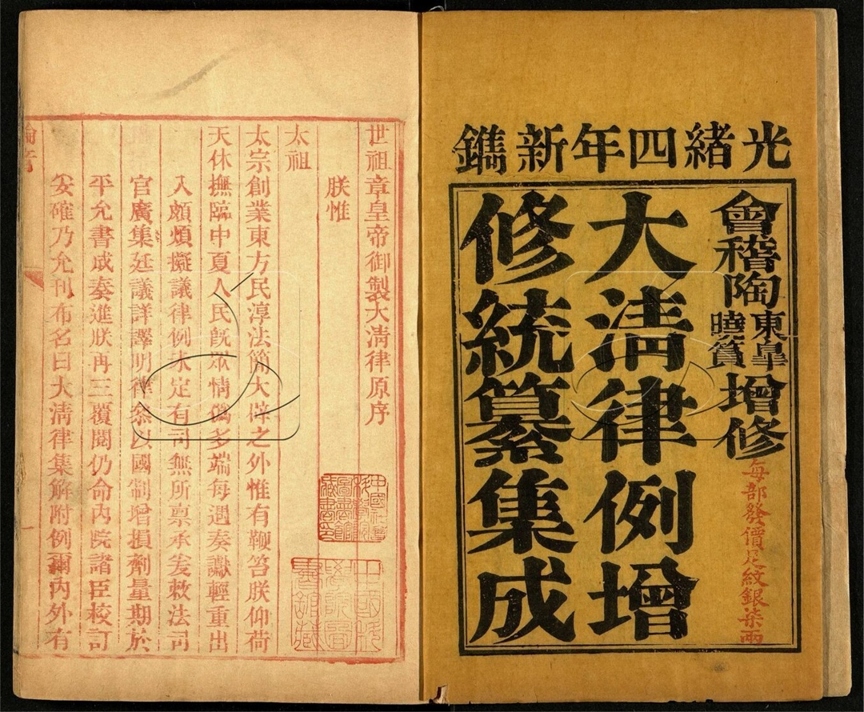 光緒四年新鐫
會稽陶東皐曉篔增修
大清律例增
修統纂集成
每部發價足紋銀柒兩
世祖章皇帝御製大清律原序
朕惟
太祖
太宗創業東方民淳法簡大辟之外惟有鞭笞朕仰荷
天休撫臨中夏人民既眾情僞多端每遇奏讞輕重出
入頗煩擬議律例未定有司無所稟承爰敕法司
官廣集廷議詳譯明律參以國制增損劑量期於
平允書成奏進朕再三覆閱仍命內院諸臣校訂
妥確乃允刊布名曰大清律集解附例爾內外有